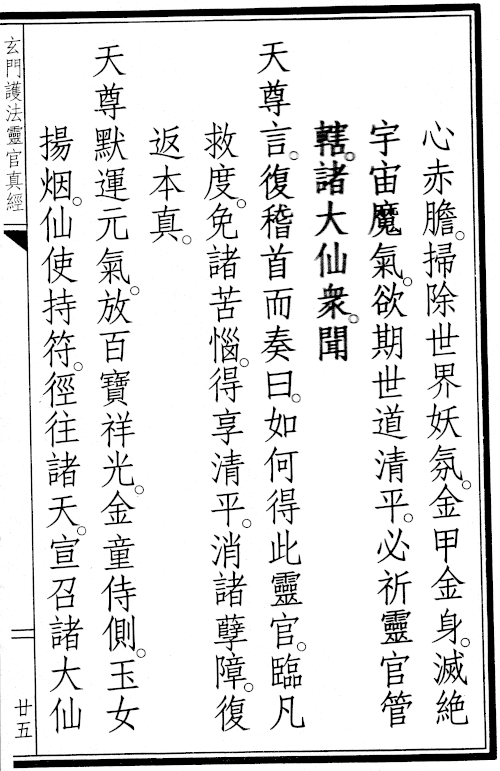 心赤膽。掃除世界妖氛。金甲金身。滅絕
宇宙魔氣。欲期世道清平。必祈靈官管
轄。諸大仙衆。聞
天尊言。復稽首而奏曰。如何得此靈官。臨凡
救度。免諸苦惱。得享清平。消諸孽障。復
返本真。
天尊默運元氣。放百寶祥光。金童侍側。玉女
揚烟。仙使持符。徑往諸天。宣召諸大仙
玄門護法靈官真經
廿五